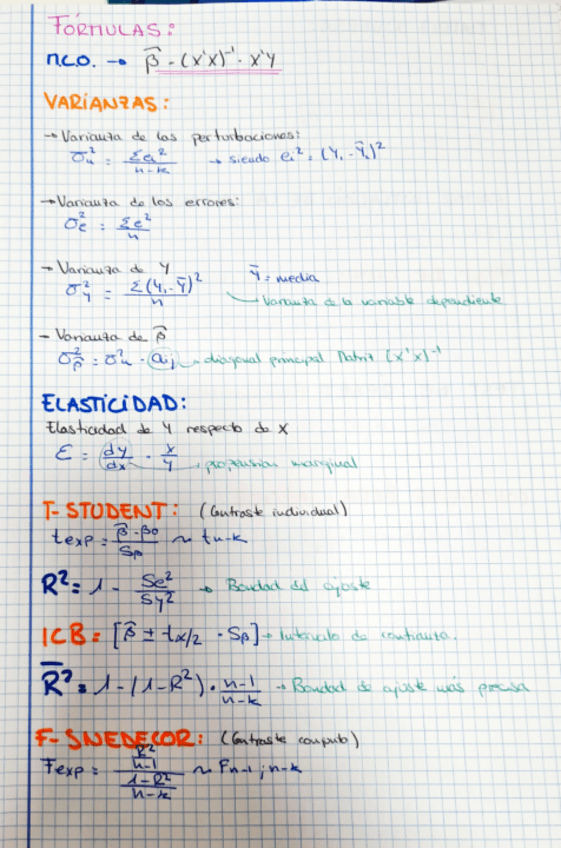 FÓRMULAS:
M.C.O. → β̂ = (X'X)⁻¹ · X'Y
VARIANZAS:
→ Varianza de las perturbaciones:
σ²ᵤ = Σei² / n-k → siendo ei² = (Yi - Ŷi)²
→ Varianza de los errores:
σ²e = Σe² / n
→ Varianza de Y Ȳ = media
σ²Y = Σ(Yi - Ȳ)² / n Varianza de la variable dependiente
- Varianza de β̂
σ²β̂ = σ²u · aij → diagonal principal Matriz (X'X)⁻¹
ELASTICIDAD:
Elasticidad de Y respecto de X
ε = dy/dx · x/y → propensión marginal
T-STUDENT: (Contraste individual)
texp = β̂ - β0 / Sβ ~ tn-k
R² = 1 - Se² / Sy² → Bondad del ajuste
ICB = [β̂ ± tα/2 · Sβ] → Intervalo de confianza.
R̄² = 1 - (1 - R²) · n-1 / n-k → Bondad de ajuste más precisa
F-SNEDECOR: (Contraste conjunto)
Fexp = (R² / n-1) / (1-R² / n-k) ~ Fn-1; n-k